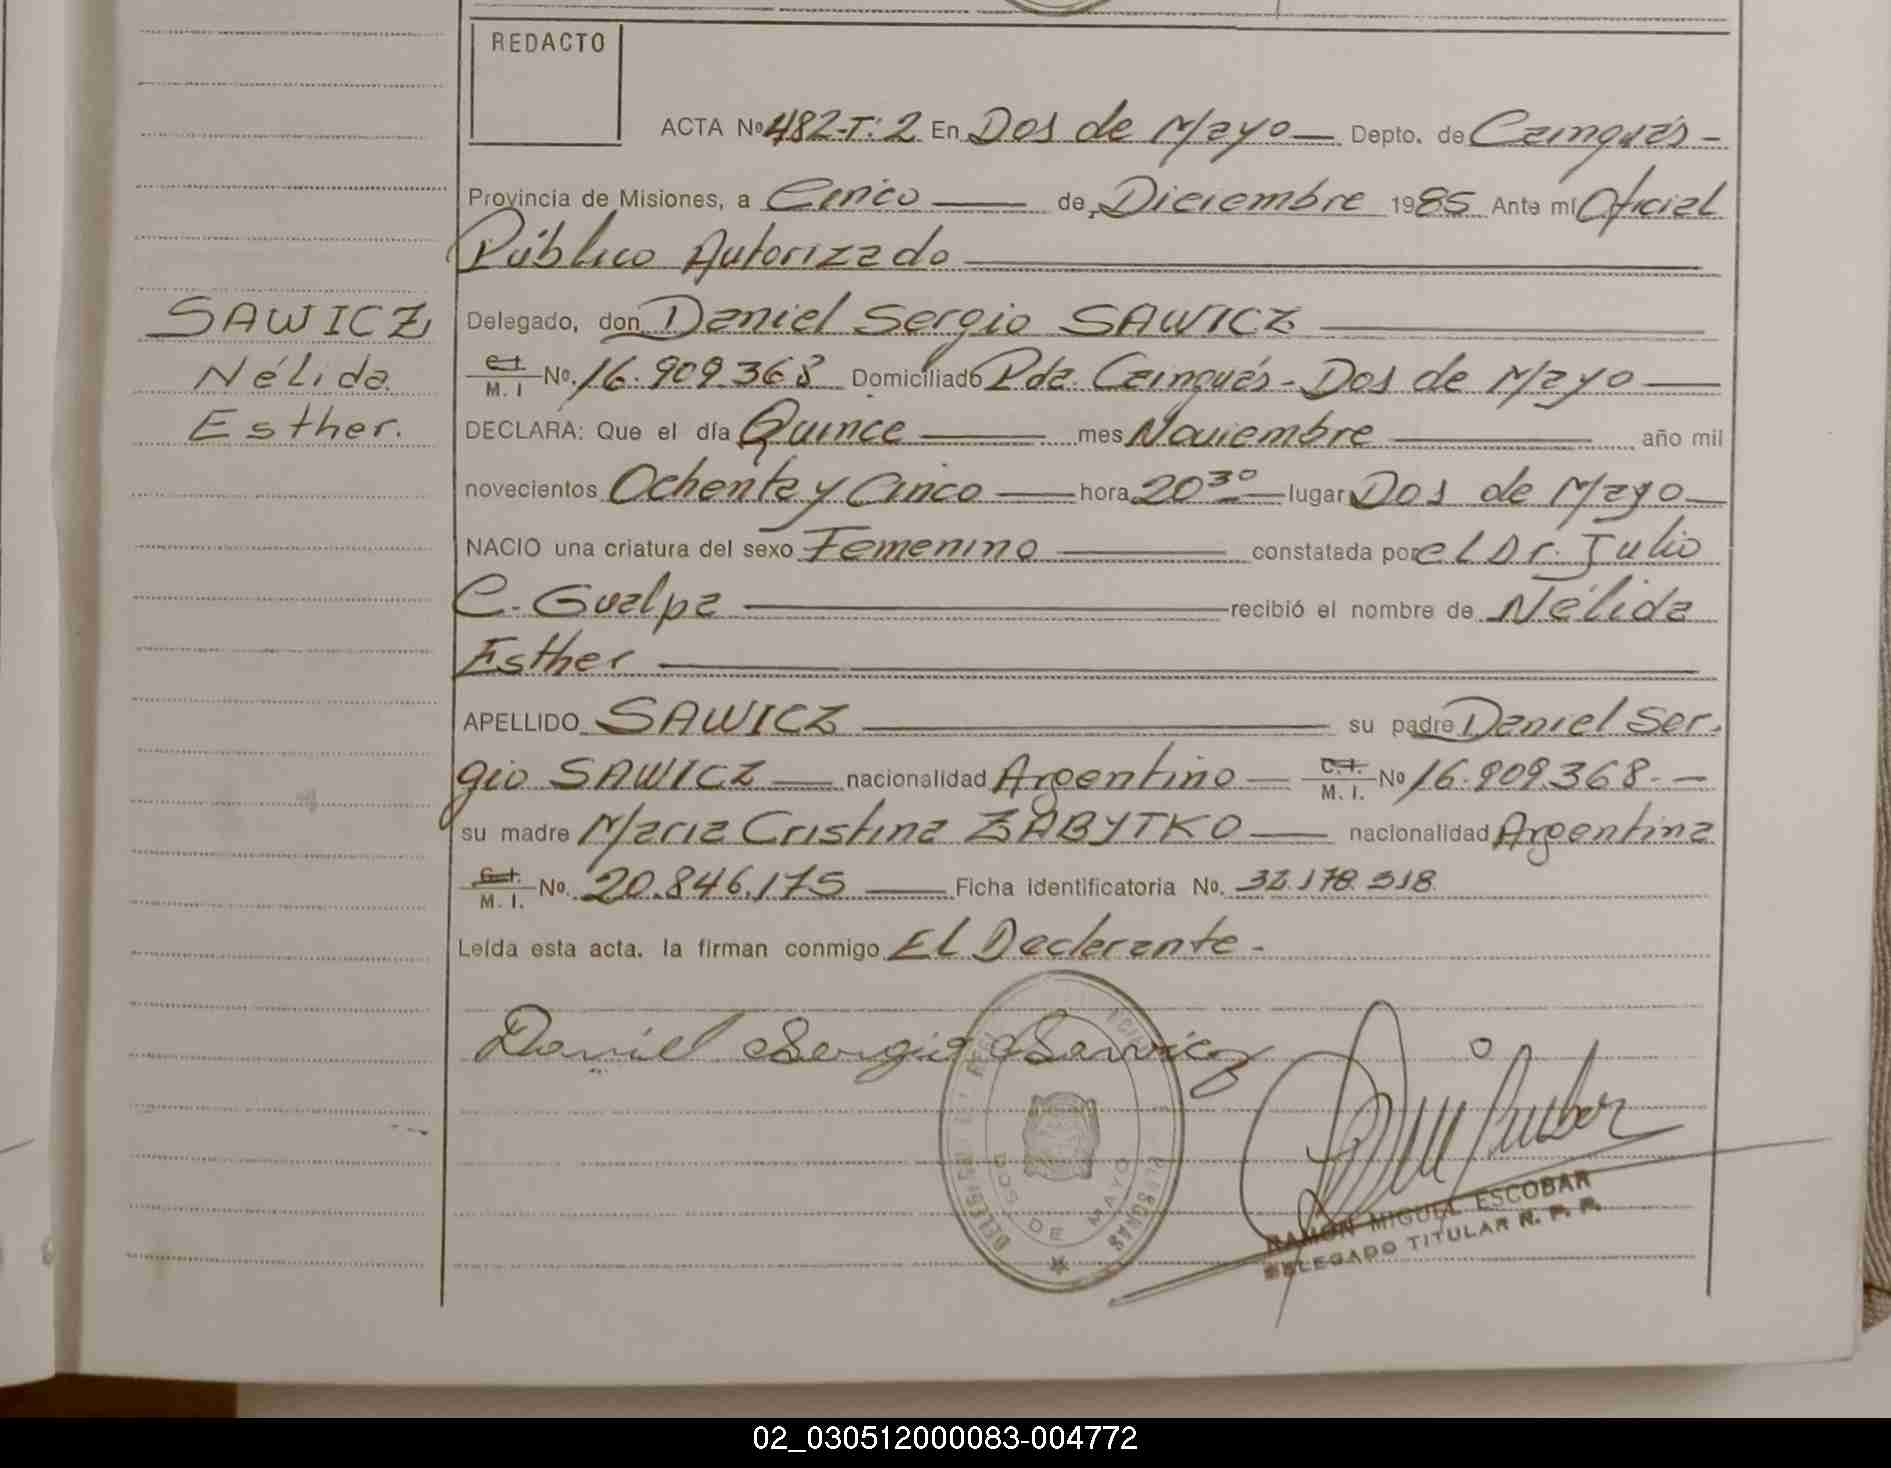 REDACTO
ACTA Nº 482-T: 2 En Dos de Mayo — Depto. de Cainguás -
Provincia de Misiones, a Cinco — de Diciembre 1985 Ante mí Oficial
Público Autorizado
SAWICZ
Nélida
Esther.
Delegado, don Daniel Sergio SAWICZ
C.I. M. I No. 16.909.368 Domiciliado Pda. Cainguás - Dos de Mayo —
DECLARA: Que el día Quince — mes Noviembre — año mil
novecientos Ochenta y Cinco — hora 20³⁰ — lugar Dos de Mayo —
NACIO una criatura del sexo Femenino — constatada por el Dr. Julio
C. Gualpa — recibió el nombre de Nélida
Esther —
APELLIDO SAWICZ — su padre Daniel Ser.
gio SAWICZ — nacionalidad Argentino — C.I. M. I. Nº 16.909.368.-
su madre Maria Cristina ZABYTKO — nacionalidad Argentina
C.I. M. I. No. 20.846.175 — Ficha identificatoria No. 32.178.318
Leída esta acta, la firman conmigo El Declarante -
Daniel Sergio Sawicz
DOS DE MAYO
PERSONAS
RAMON MIGUEL ESCOBAR
DELEGADO TITULAR R. P. P.
02_030512000083-004772